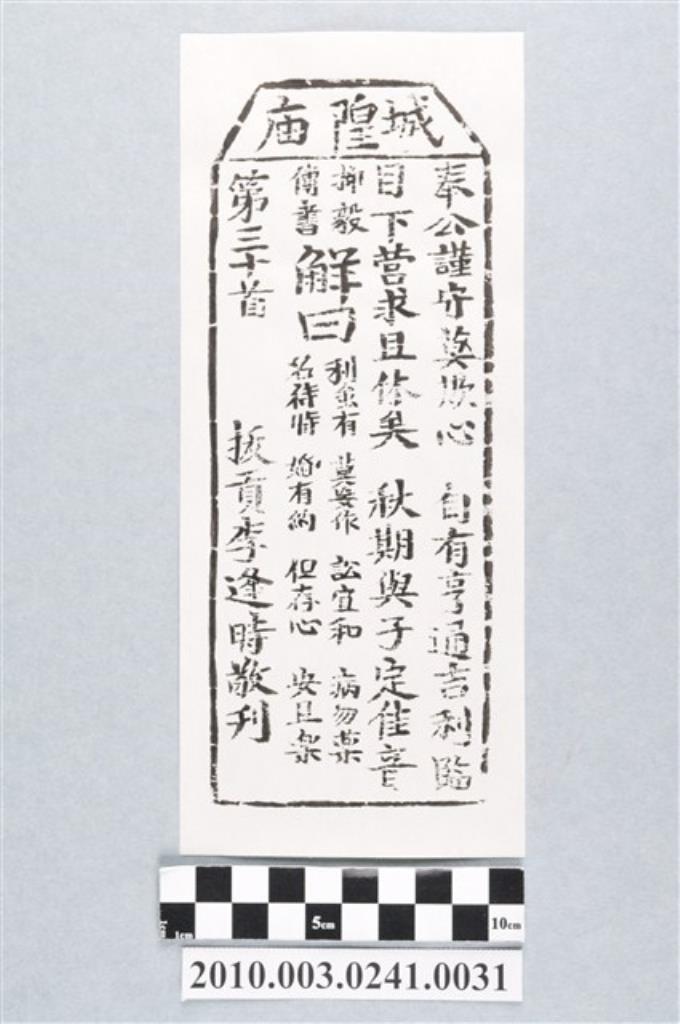 城隍庙
奉公謹守莫欺心 自有亨通吉利臨
目下營求且休矣 秋期與子定佳音
柳毅
傳書
解曰
利虽有 莫妄作 訟宜和 病勿薬
名待時 婚有約 但存心 安且楽
第三十首 拔貢李逢時敬刊
5cm
10cm
1cm
2010.003.0241.0031